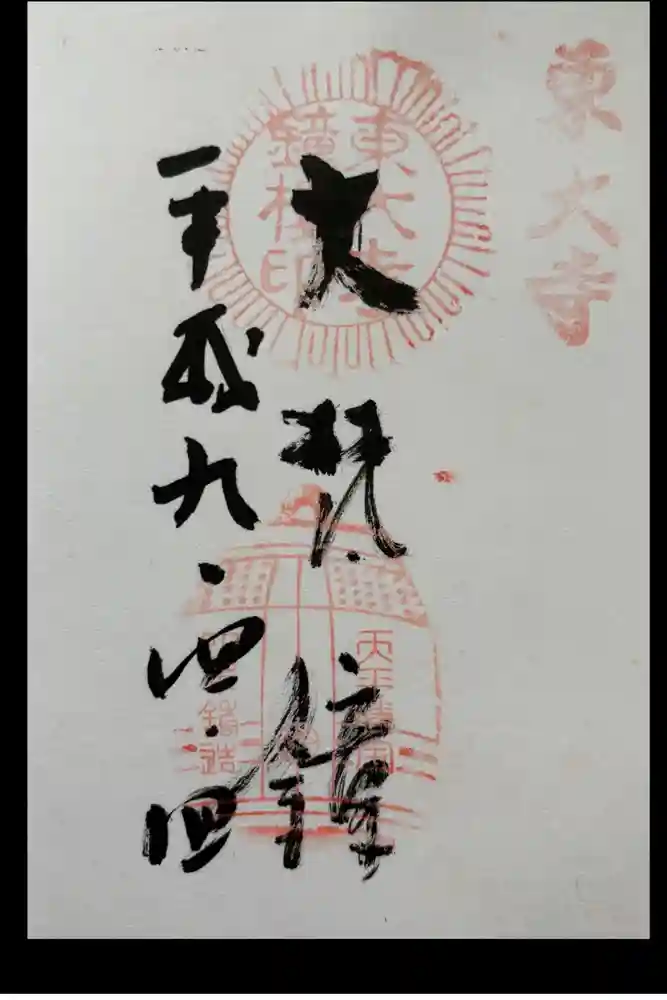 東大寺
東大寺
鐘楼印
大梵鐘
平成九・四・四